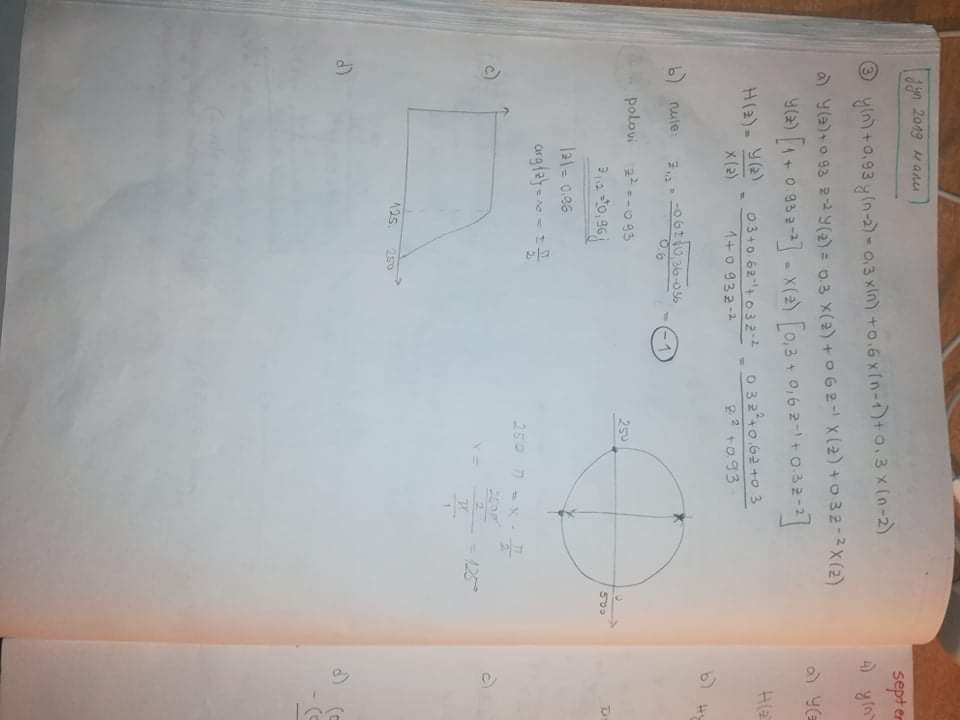 јул 2019 мали
③ y(n) + 0,93 y(n-2) = 0,3 x(n) + 0,6 x(n-1) + 0,3 x(n-2)
a) Y(z) + 0.93 z-2 Y(z) = 0.3 X(z) + 0.6 z-1 X(z) + 0.3 z-2 X(z)
Y(z) [1 + 0.93 z-2] = X(z) [0,3 + 0,6 z-1 + 0.3 z-2]
H(z) = Y(z)/X(z) = 0.3+0.6z-1+0.3z-2 / 1+0.93z-2 = 0.3z2+0,6z+0.3 / z2+0.93
b) nule: z1,2 = -0.6±√0,36-0.36 / 0.6 = -1
polovi z2 = -0.93
z1,2 = ±0,96j
|z| = 0.96
arg{z} = ± π/2
250
0
500
250 π = x · π/2
= 125
c)
125.
250
d)
septe
4) y(n)
a) Y(z
H(z
b)
c)
d)